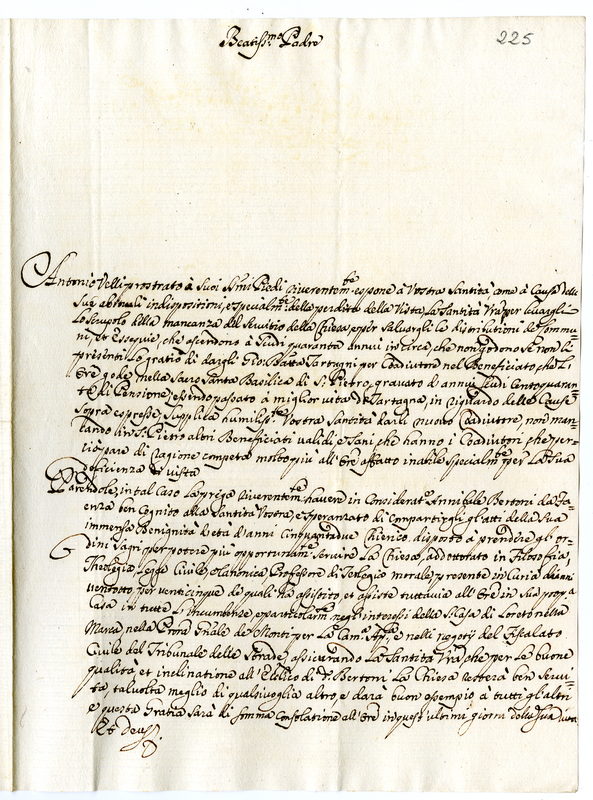 Beatiss.mo Padre
225
Antonio Velli prostrato à suoi SS.mi Piedi riverentem.te espone à Vostra Santità come à Causa delle
sue abituali indisposizioni, e specialm.te della perdita della Vista, la Santità V̄ra per levargli
lo scrupolo della mancanza del Servitio della Chiesa, e per salvargli le distributioni de Commu-
ni, et Essequie, che ascendono à scudi quaranta annui in circa, che non godono se non li
presenti, le gratiò di dargli Gio: Batta Tartagni per Coadiutore nel Beneficiato, che l'
Ōre gode nella Sacro Santa Basilica di S. Pietro, gravato d'annui scudi Centoquaran-
ta di Pensione, e essendo passato à miglior vita il Tartagna, in riguardo delle Cause
sopra espresse, supplica humiliss.te Vostra Santità darli nuovo Coadiutore, non man-
cando in S. Pietro altri Beneficiati validi, e sani che hanno i Coadiutori, che per-
ciò pare di ragione competa molto più all' Ōre affatto inabile specialm.te per la sua
deficienza di vista
Parendole, in tal caso la priega riverentem.te havere in Considerat.e Annibale Bertoni da Fa-
enza ben Cognito alla Santità Vostra, e speranzato di compartirgli gli atti della sua
immensa Benignità d'età d'anni Cinquantadue Chierico, disposto à prendere gl'or-
dini sagri per potere più opportunam.te servire la Chiesa, addottorato in Filosofia,
Theologia, Legge Civile, e Canonica, Professore di Teologia morale, presente in Curia d'anni
ventotto, per venticinque de quali hà assistito, et assiste tuttavia all' Ōre in sua propria
Casa in tutte l'incumbenze, e particolarm.te negl' interessi della S. Casa di Loreto nella
Marca, nella Erona Gn̄ale de Monti per la Cam.a Ap.ca, e nelli negotij del Fiscalato
Civile del Tribunale delle Strade, assicurando la Santità V̄ra, che per la buone
qualità, et inclinatione all' Edifico di d.o Bertoni la Chiesa restera ben servi-
ta, talvolta meglio di qualsivoglia altro, e darà buon esempio à tutti gl'altri
e questa Gratia sarà di somma Consolatione all' Ōre in questi ultimi giorni della sua vita